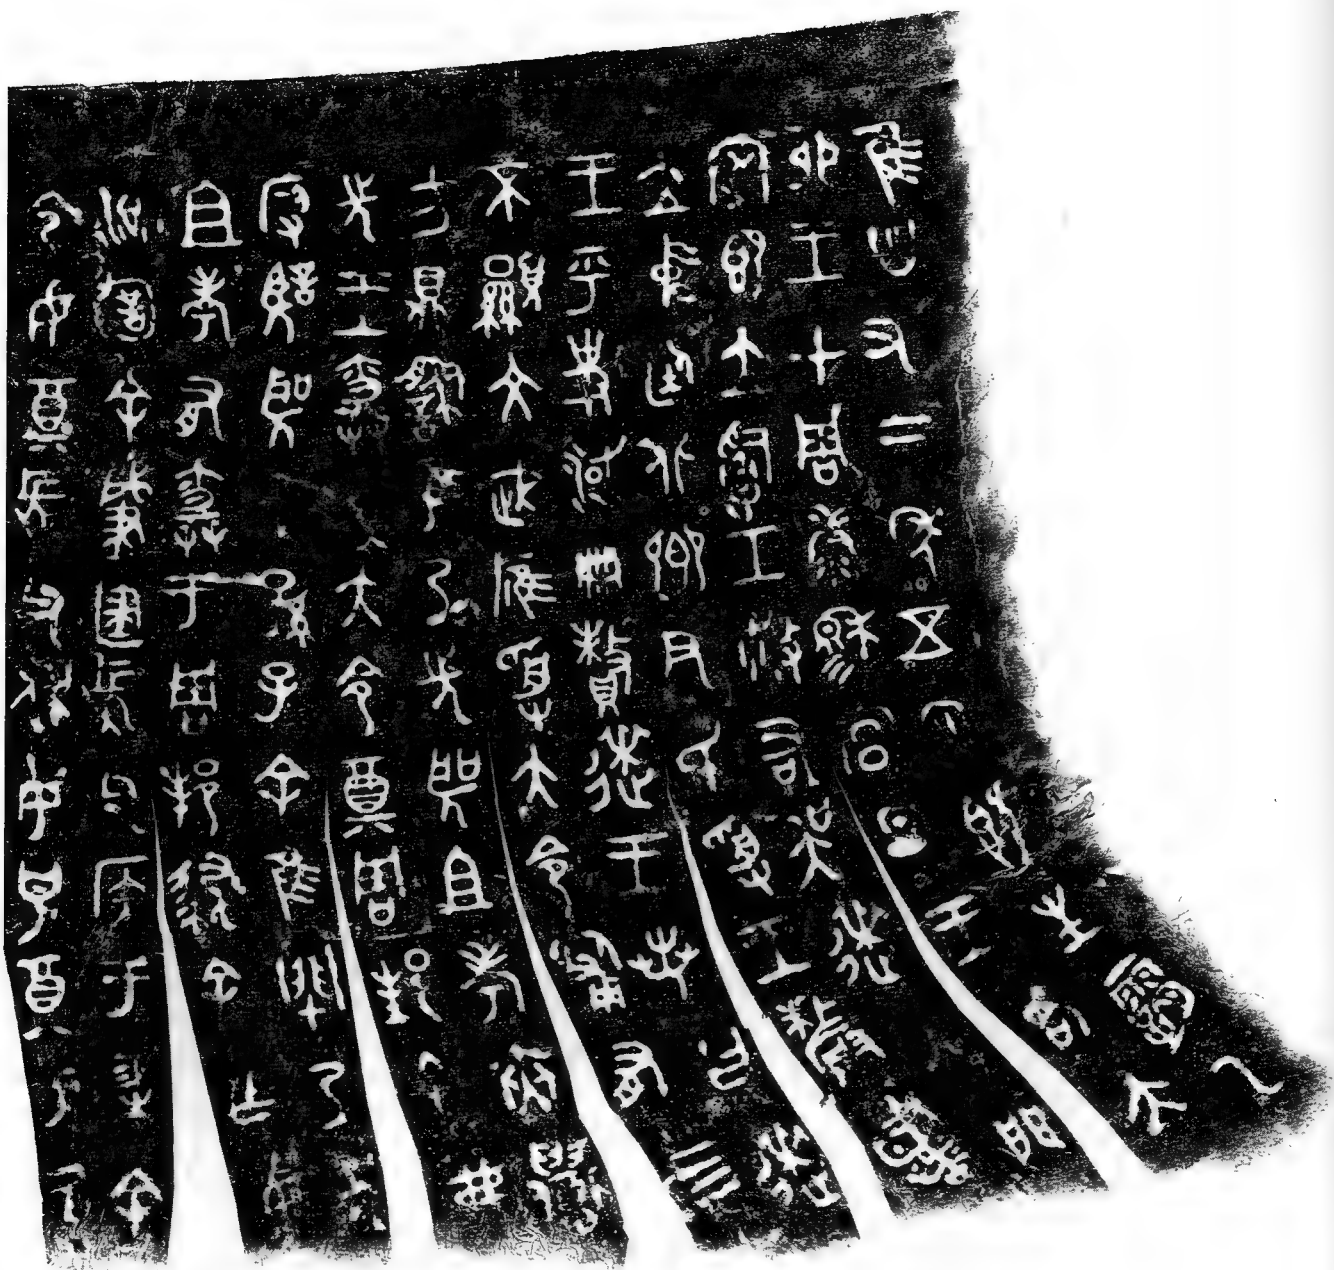 隹卌又二年五月既生霸乙
卯王才周康穆宮旦王各大
室即立嗣工散右吳逨入門
立中廷北鄉尹氏受王釐書
王乎史減冊釐逨王若曰逨
不顯文武膺受大令匍有四
方則繇隹乃先聖且考夾召
先王爵堇大令奠周邦余弗
叚忘聖人孫子余隹閘乃先
且考有爵于周邦肆余乍
沙詢余肇建長父侯于楊余
令女奠長父休女克奠于氒